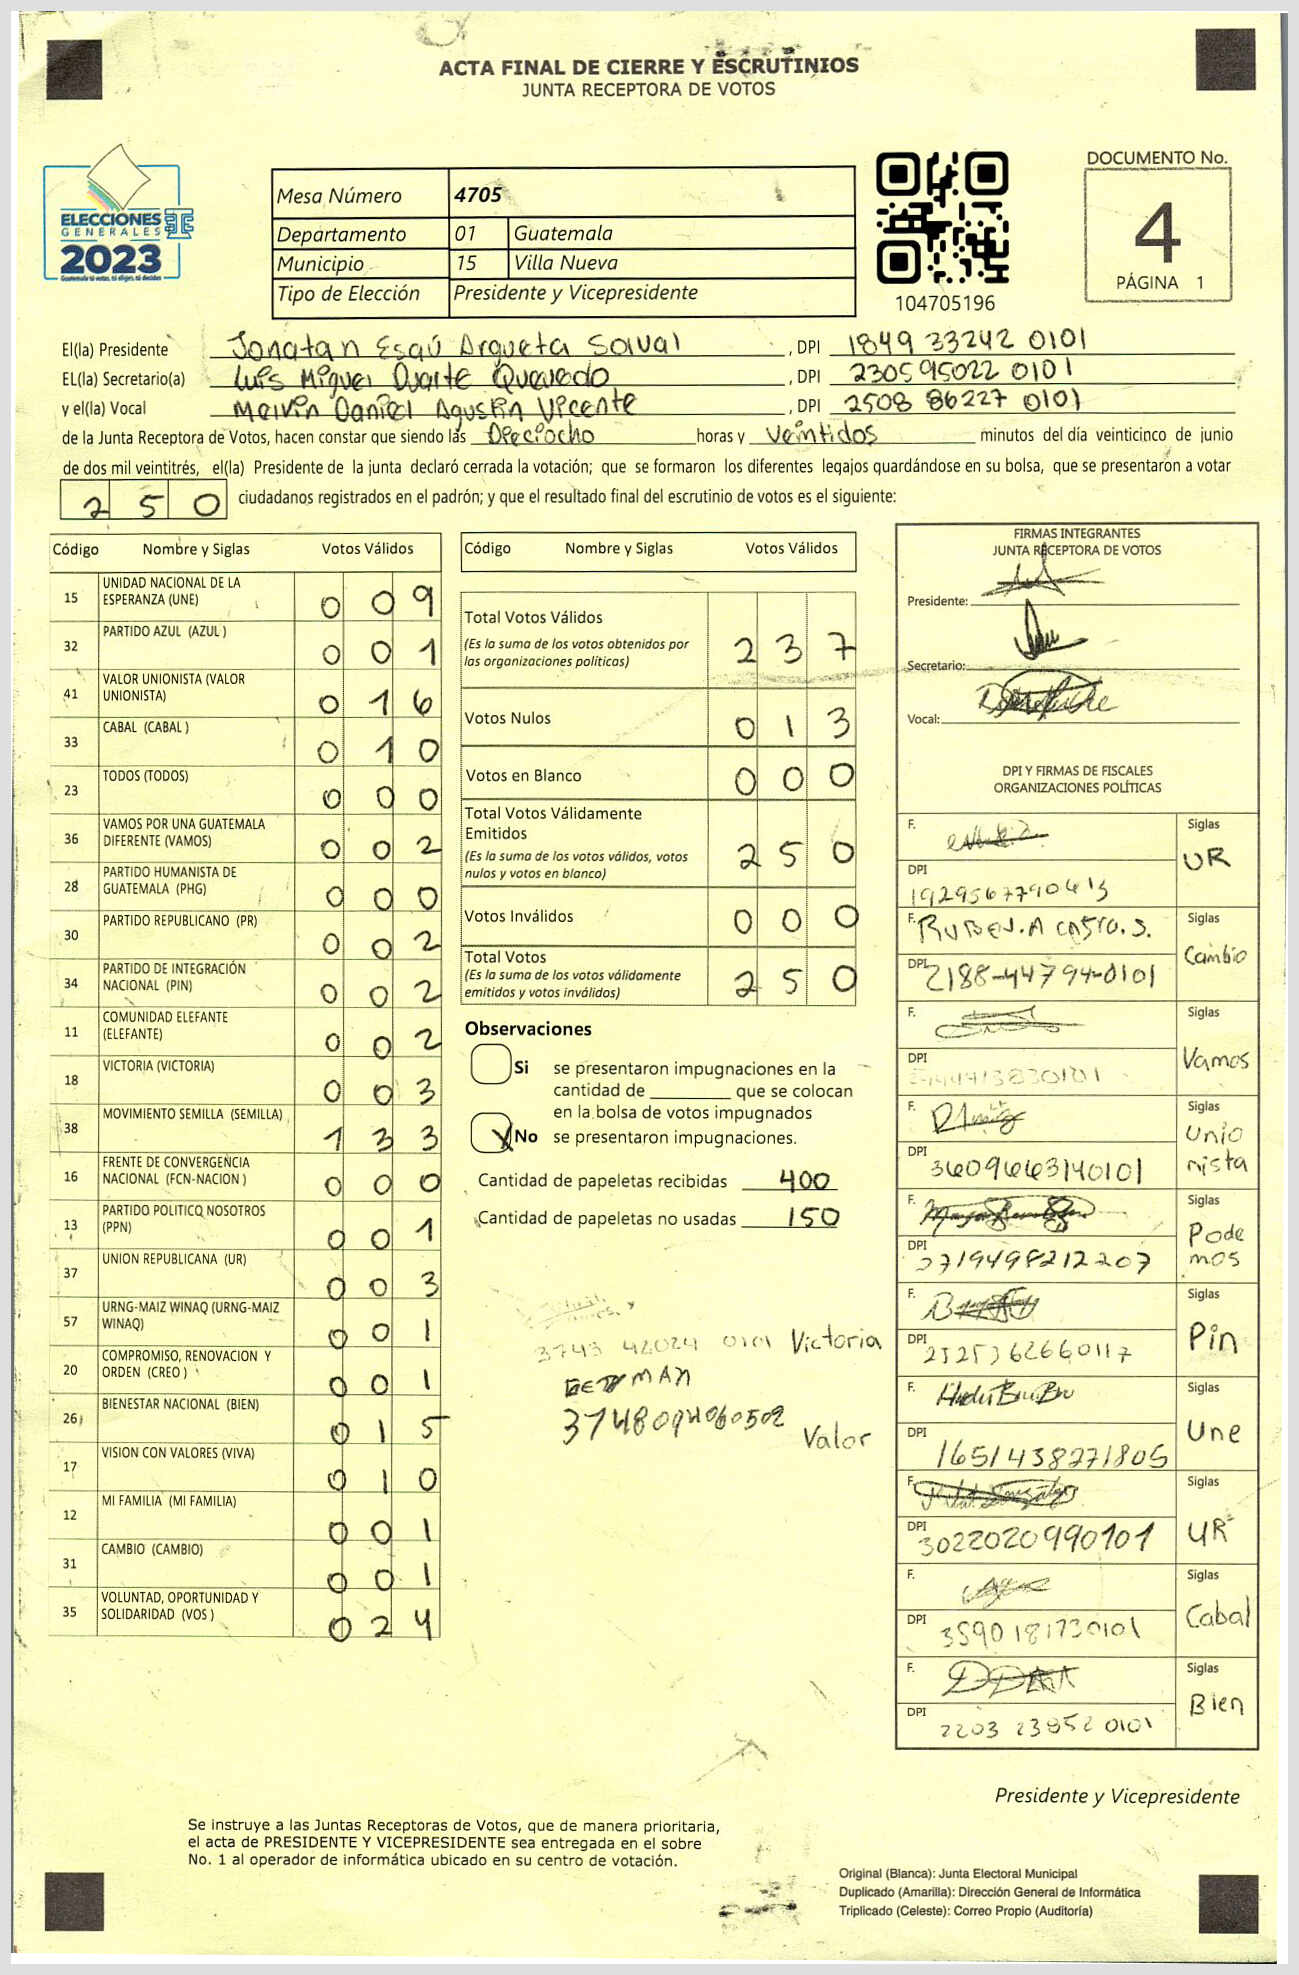 ACTA FINAL DE CIERRE Y ESCRUTINIOS
JUNTA RECEPTORA DE VOTOS
ELECCIONES
GENERALES
2023
Guatemala tú votas, tú eliges, tú decides
Mesa Número 4705
Departamento 01 Guatemala
Municipio 15 Villa Nueva
Tipo de Elección Presidente y Vicepresidente
104705196
DOCUMENTO No.
4
PÁGINA 1
El(la) Presidente Jonatan Esaú Argueta Saval, DPI 1849 33242 0101
EL(la) Secretario(a) Luis Miguel Duarte Quevedo, DPI 230595022 0101
y el(la) Vocal Melvin Daniel Agustin Vicente, DPI 2508 86227 0101
de la Junta Receptora de Votos, hacen constar que siendo las Dieciocho horas y Veintidos minutos del día veinticinco de junio
de dos mil veintitrés, el(la) Presidente de la junta declaró cerrada la votación; que se formaron los diferentes legajos guardándose en su bolsa, que se presentaron a votar
250 ciudadanos registrados en el padrón; y que el resultado final del escrutinio de votos es el siguiente:
Código Nombre y Siglas Votos Válidos
15 UNIDAD NACIONAL DE LA ESPERANZA (UNE) 0 0 9
32 PARTIDO AZUL (AZUL ) 0 0 1
41 VALOR UNIONISTA (VALOR UNIONISTA) 0 1 6
33 CABAL (CABAL ) 0 1 0
23 TODOS (TODOS) 0 0 0
36 VAMOS POR UNA GUATEMALA DIFERENTE (VAMOS) 0 0 2
28 PARTIDO HUMANISTA DE GUATEMALA (PHG) 0 0 0
30 PARTIDO REPUBLICANO (PR) 0 0 2
34 PARTIDO DE INTEGRACIÓN NACIONAL (PIN) 0 0 2
11 COMUNIDAD ELEFANTE (ELEFANTE) 0 0 2
18 VICTORIA (VICTORIA) 0 0 3
38 MOVIMIENTO SEMILLA (SEMILLA) 1 3 3
16 FRENTE DE CONVERGENCIA NACIONAL (FCN-NACION ) 0 0 0
13 PARTIDO POLITICO NOSOTROS (PPN) 0 0 1
37 UNION REPUBLICANA (UR) 0 0 3
57 URNG-MAIZ WINAQ (URNG-MAIZ WINAQ) 0 0 1
20 COMPROMISO, RENOVACION Y ORDEN (CREO ) 0 0 1
26 BIENESTAR NACIONAL (BIEN) 0 1 5
17 VISION CON VALORES (VIVA) 0 1 0
12 MI FAMILIA (MI FAMILIA) 0 0 1
31 CAMBIO (CAMBIO) 0 0 1
35 VOLUNTAD, OPORTUNIDAD Y SOLIDARIDAD (VOS ) 0 2 4
Código Nombre y Siglas Votos Válidos
Total Votos Válidos
(Es la suma de los votos obtenidos por
las organizaciones políticas) 2 3 7
Votos Nulos 0 1 3
Votos en Blanco 0 0 0
Total Votos Válidamente
Emitidos
(Es la suma de los votos válidos, votos
nulos y votos en blanco) 2 5 0
Votos Inválidos 0 0 0
Total Votos
(Es la suma de los votos válidamente
emitidos y votos inválidos) 2 5 0
Observaciones
Si se presentaron impugnaciones en la
cantidad de ________ que se colocan
en la bolsa de votos impugnados
X No se presentaron impugnaciones.
Cantidad de papeletas recibidas 400
Cantidad de papeletas no usadas 150
3743 42024 0101 Victoria
3748094060502
Valor
FIRMAS INTEGRANTES
JUNTA RECEPTORA DE VOTOS
Presidente:
Secretario:
Vocal:
DPI Y FIRMAS DE FISCALES
ORGANIZACIONES POLÍTICAS
F. Siglas
UR
DPI 1929567790413
F. RUBEN.A CASTRO.S. Siglas
Cambio
DPI 2188-44794-0101
F. Siglas
Vamos
DPI
F. Siglas
Unio
nista
DPI 3609663140101
F. Siglas
Pode
mos
DPI 3719498212207
F. Siglas
Pin
DPI 2325362660117
F. Siglas
Une
DPI 1651438271805
F. Siglas
UR
DPI 3022020990101
F. Siglas
Cabal
DPI 3590181730101
F. Siglas
Bien
DPI 2203 23852 0101
Presidente y Vicepresidente
Se instruye a las Juntas Receptoras de Votos, que de manera prioritaria,
el acta de PRESIDENTE Y VICEPRESIDENTE sea entregada en el sobre
No. 1 al operador de informática ubicado en su centro de votación.
Original (Blanca): Junta Electoral Municipal
Duplicado (Amarilla): Dirección General de Informática
Triplicado (Celeste): Correo Propio (Auditoría)